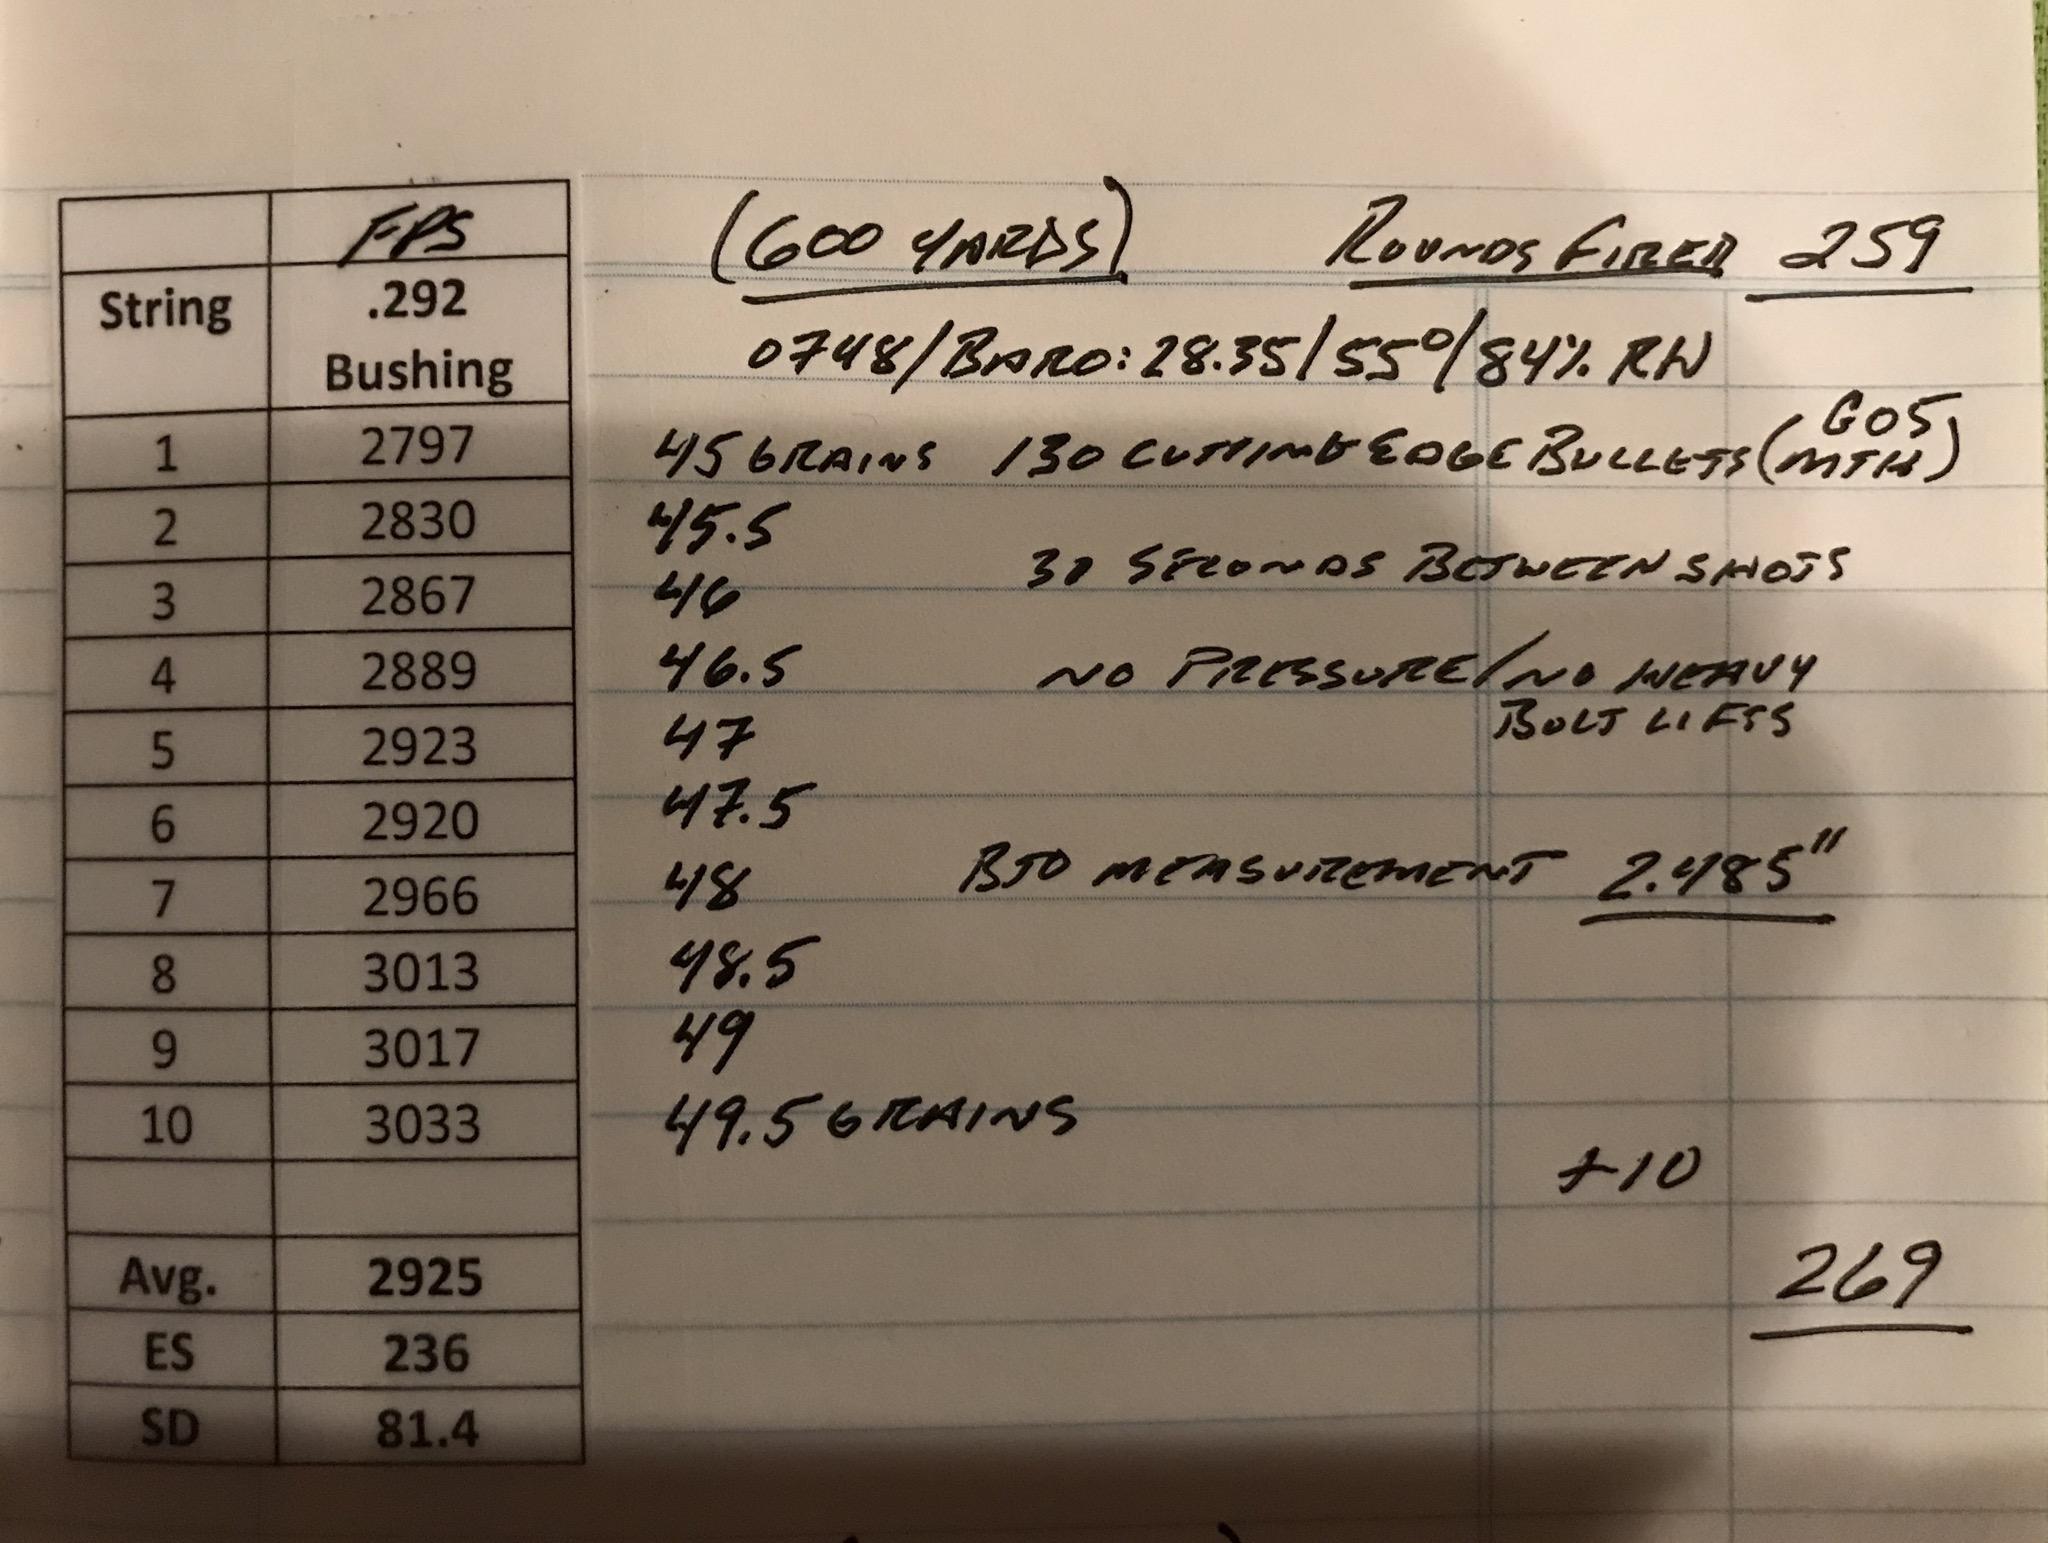 FPS (600 YARDS) ROUNDS FIRED 259
String .292 Bushing
0748/BARO: 28.35/55°/84% RH
1 2797 45 GRAINS 130 CUTTING EDGE BULLETS (GOS MTH)
2 2830 45.5
30 SECONDS BETWEEN SHOTS
3 2867 46
4 2889 46.5 NO PRESSURE/NO HEAVY
BOLT LIFTS
5 2923 47
6 2920 47.5
7 2966 48 BTO MEASUREMENT 2.485"
8 3013 48.5
9 3017 49
10 3033 49.5 GRAINS
+10
Avg. 2925 269
ES 236
SD 81.4